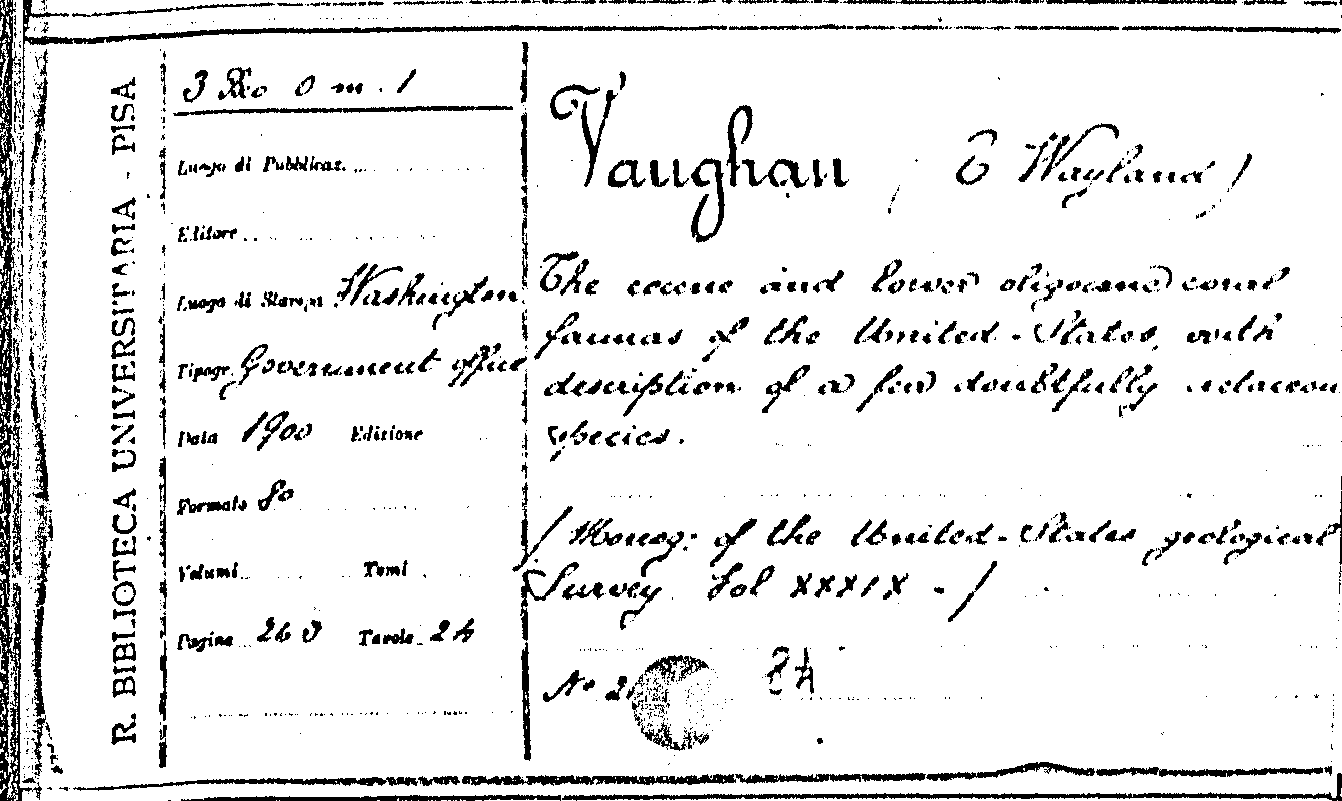 R. BIBLIOTECA UNIVERSITARIA - PISA
3 0 m. 1
Luogo di Pubblicaz.
Editore
Luogo di Stampa Washington
Tipogr. Government office
Data 1900 Edizione
Formato 8o
Volumi Tomi
Pagine 263 Tavole 24
Vaughan (T Wayland)
The eocene and lower oligocene coral
faunas of the United-States, with
description of a few doubtfully cretaceou
species.
/ Monog: of the United-States geological
Survey Vol XXXIX - /
No 2
84